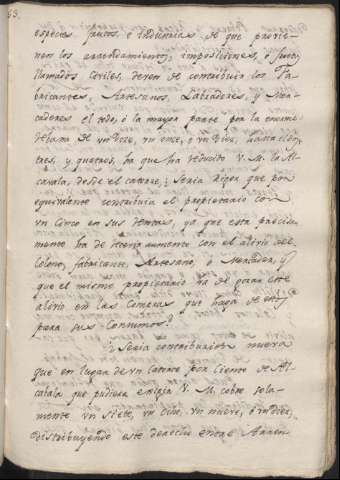 63.
especies frutos, ò Industrias de que provie-
nen los arrendamientos, imposiciones, ò fru
llamados Civiles, dexen de contribuir los Fa-
bricantes, Artesanos, Labradores, y Mer-
caderes el todo, ò la mayor parte por la enorme
rebaxa de un doze, un once, ò un Diez, hasta un
tres, y quatro, à que ha reducido V. M. la Al-
cavala, desde el catorze; Seria rigor que por
equivalente contribuia el propietario con
un Cinco en sus Rentas, ya que esta precisa-
mente ha de tener aumento con el alivio del
Colono, fabricante, Artesano, ò Mercader, y
que el mismo propietario ha de gozar este
alivio en las Compras que haga de
para sus Consumos?
¿Seria contribucion nueva
que en lugar de un Catorce por Ciento de Al-
cabala que pudiera exigir V. M. cobre sola-
mente un Siete, un Ocho, un nueve, ò un diez,
distribuyendo este derecho entre Arren-